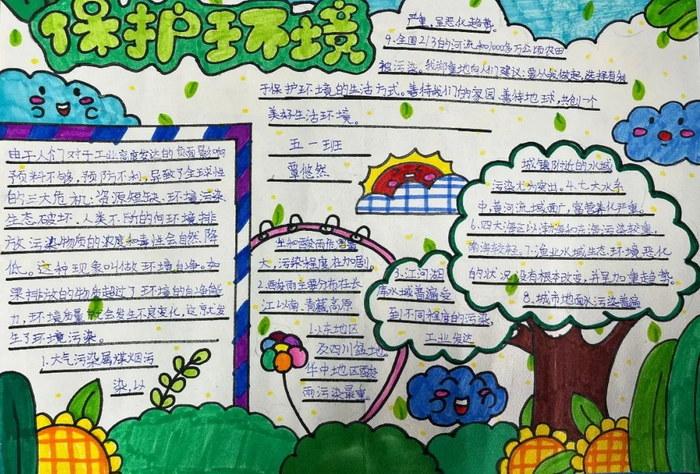 保护环境
由于人们对于工业高度发达的负面影响
预料不够,预防不利,导致了全球性
的三大危机:资源短缺、环境污染、
生态破坏.人类不断的向环境排
放污染物质的浓度和毒性会自然降
低。这种现象叫做环境自净。如
果排放的物质超过了环境的自净能
力,环境质量就会发生不良变化,这就发
生了环境污染。
1.大气污染属煤烟污
染,以
大,污染程度在加剧。
2.酸雨主要分布在长
江以南、青藏高原
以东地区
及四川盆地.
华中地区酸
雨污染最重。
3.江河湖
库水域普遍受
到不同程度的污染,
工业发达
城镇附近的水域
污染尤为突出。4.七大水系
中,黄河流域
6.四大海区以渤海和东海污染较重,
南海较轻。7.渔业水域生态环境恶化
的状况没有根本改变,并呈加重趋势。
8.城市地面水污染普遍
严重,呈恶化趋势。
9.全国2/3的河流和1000多万公顷农田
被污染。我郑重地向人们建议:要从我做起,选择有利
于保护环境的生活方式。善待我们的家园,善待地球,共创一个
美好生活环境。
五一班
覃悠然